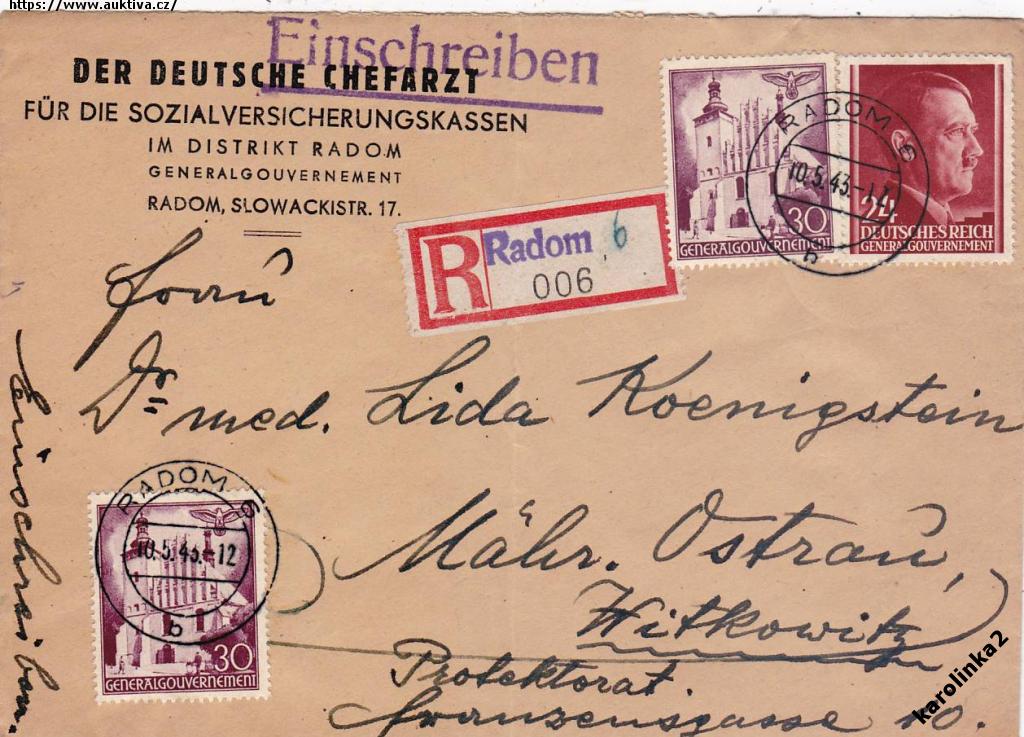 https://www.auktiva.cz/
Einschreiben
DER DEUTSCHE CHEFARZT
FÜR DIE SOZIALVERSICHERUNGSKASSEN
IM DISTRIKT RADOM
GENERALGOUVERNEMENT
RADOM, SLOWACKISTR. 17.
R Radom 6
006
30
GENERALGOUVERNEMENT
24
DEUTSCHES REICH
GENERALGOUVERNEMENT
RADOM 6
10.5.43.-12
b
Frau
Dr. med. Lida Koenigstein
Mähr. Ostrau,
Witkowitz
Protektorat.
Franzensgasse 10.
Einschreiben.
RADOM 6
10.5.43.-12
b
30
GENERALGOUVERNEMENT
karolinka2